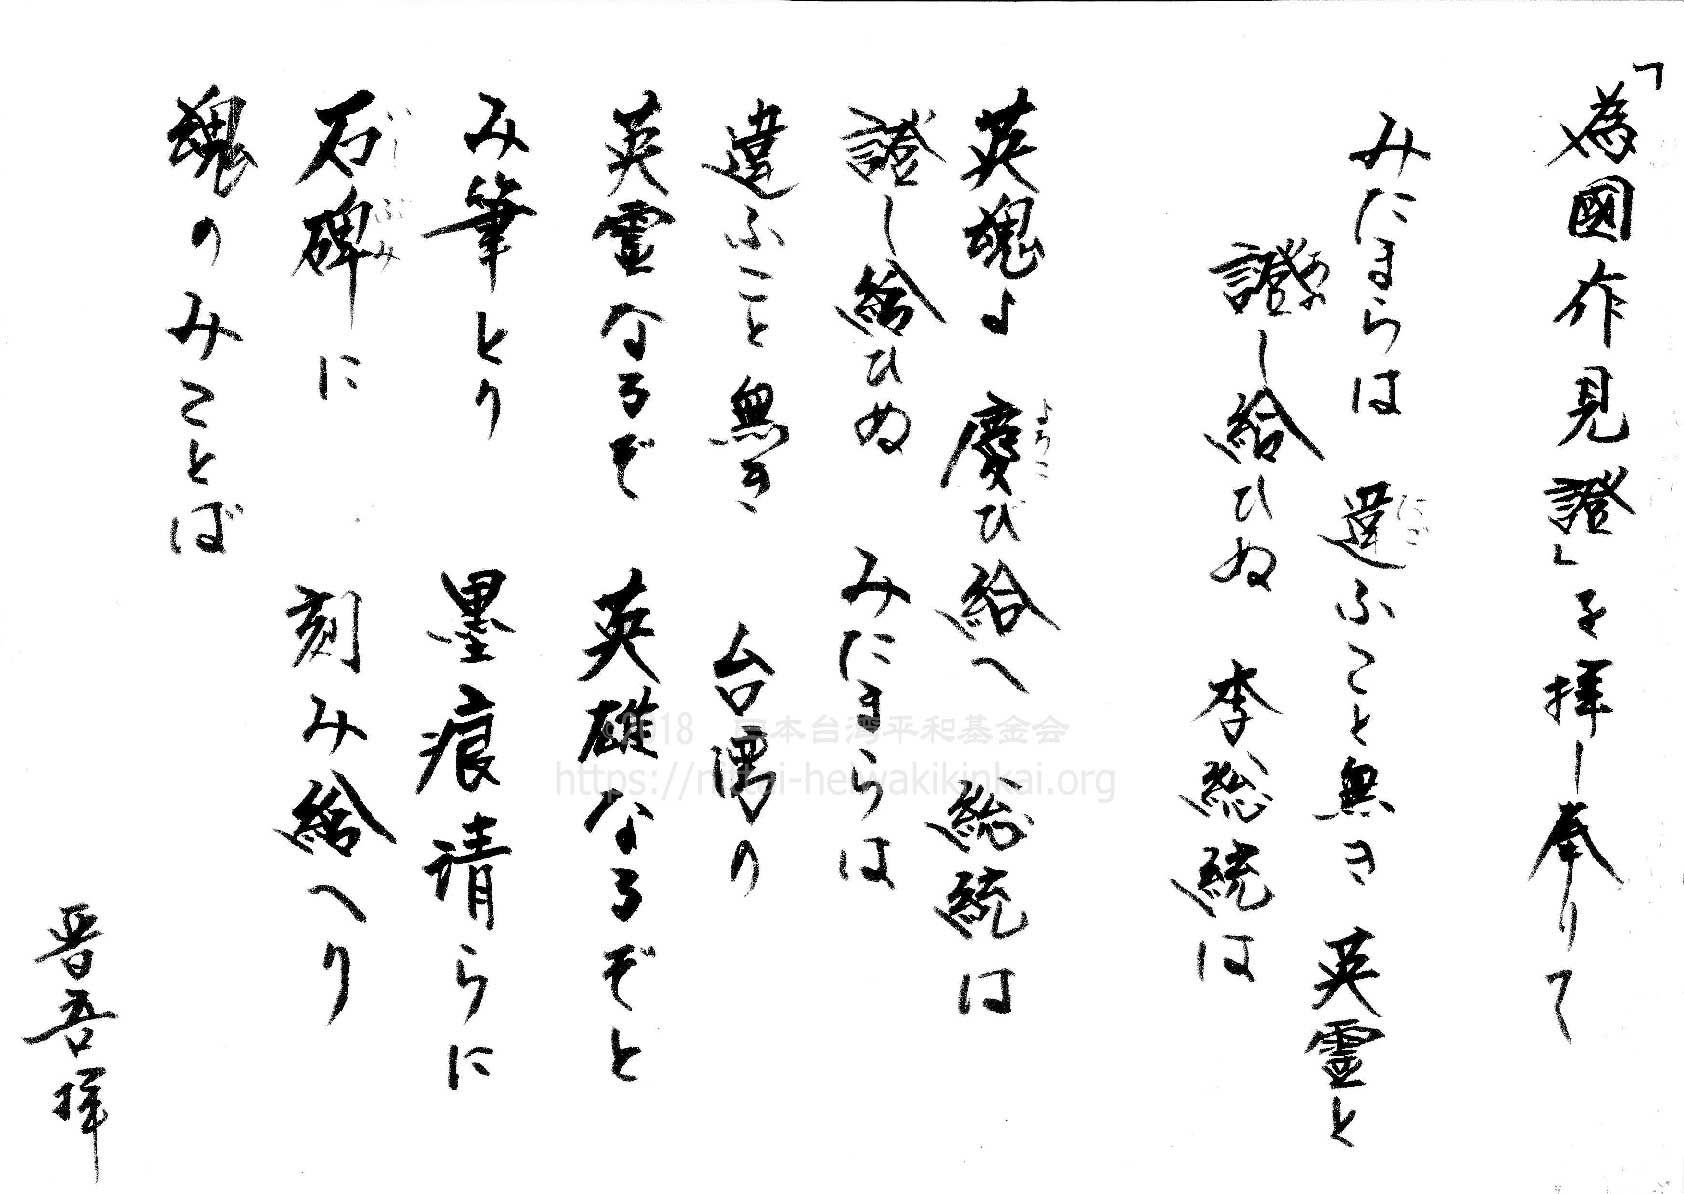 「為國作見證」を拝し奉りて
みたまらは　違ふこと無き　英霊と
證し給ひぬ　李総統は
英魂よ　慶び給へ　総統は
證し給ひぬ　みたまらは
違ふこと無き　台湾の
英霊なるぞ　英雄なるぞと
み筆とり　墨痕清らに
石碑に　刻み給へり
魂のみことば
晋吾拝
©2018　日本台湾平和基金会
https://nittai-heiwakikinkai.org